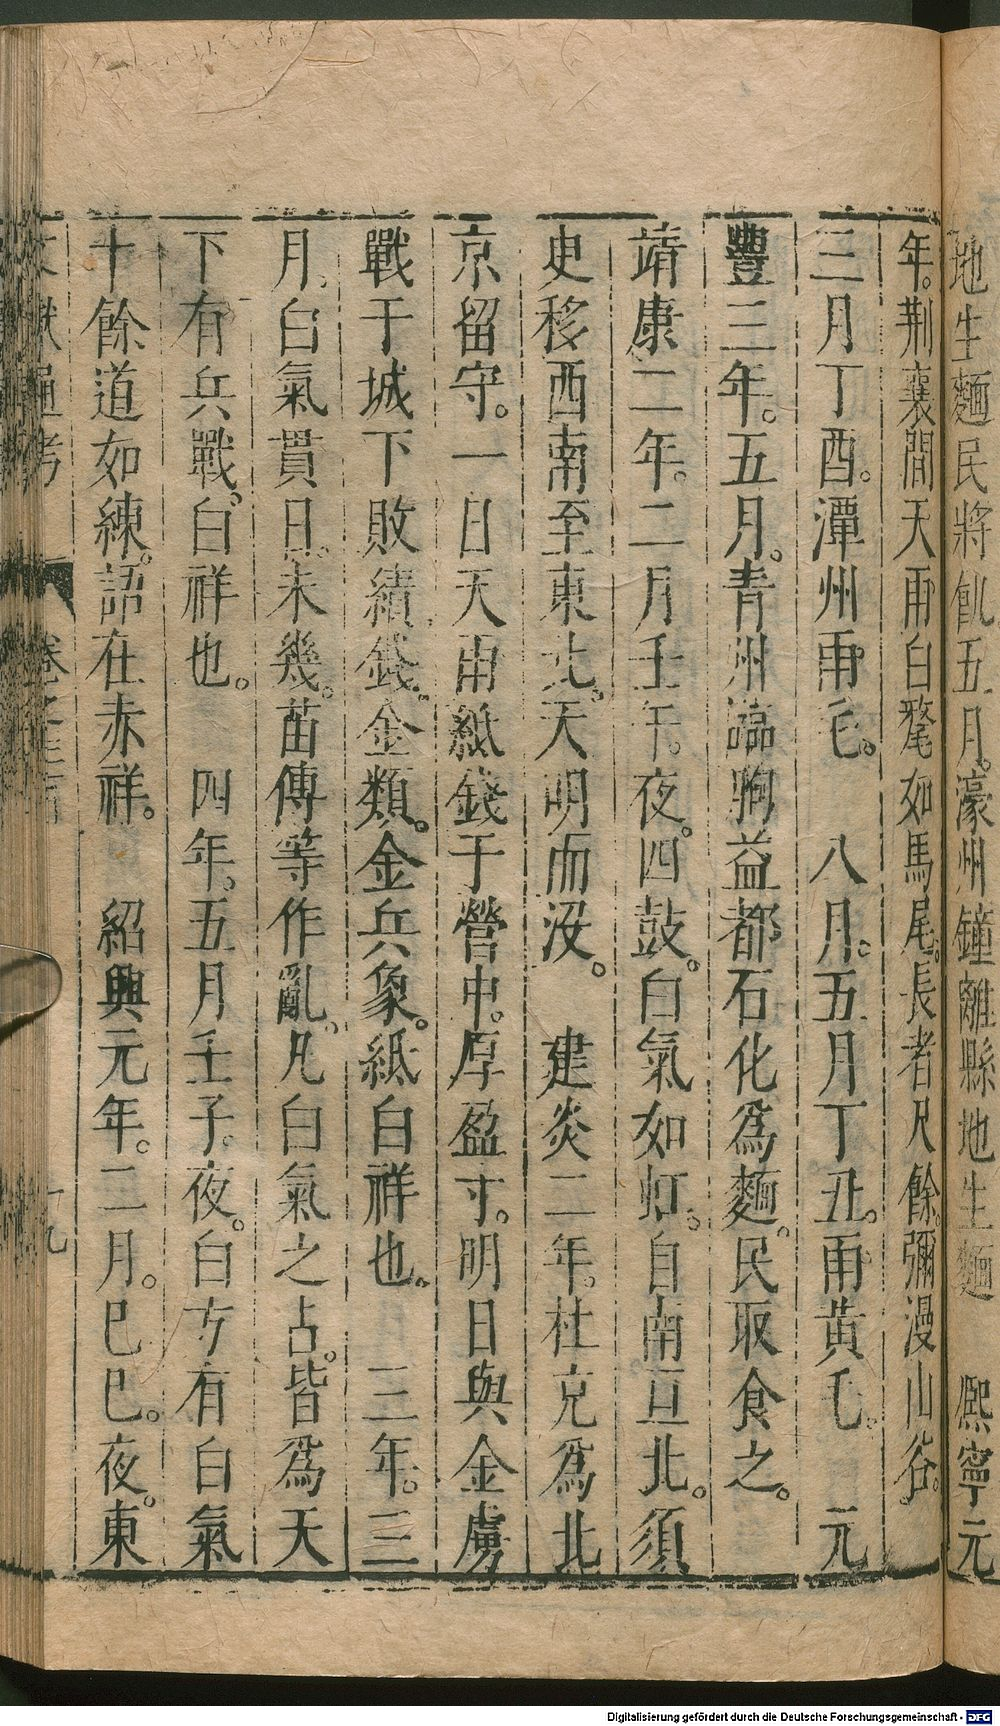 地生麵民將飢五月濠州鐘離縣地生麵　熙寧元
年。荆襄間天雨白氂如馬尾。長者尺餘。彌漫山谷。
三月丁酉。潭州雨毛。　八月。五月丁丑。雨黃毛。　元
豐三年。五月。青州臨朐益都石化爲麵。民取食之。
靖康二年。二月壬午。夜。四鼓。白氣如虹。自南亘北。須
史移西南至東北。天明而沒。　建炎二年。杜充爲北
京留守。一日天雨紙錢于營中。厚盈寸。明日與金虜
戰于城下敗績錢。金類。金兵象。紙白祥也。　三年。三
月。白氣貫日。未幾。苗傅等作亂。凡白氣之占。皆爲天
下有兵戰。白祥也。　四年。五月壬子。夜。白方有白氣
十餘道如練。語在赤祥。　紹興元年。二月。巳巳。夜。東
文獻通考　卷之三百　十九
Digitalisierung gefördert durch die Deutsche Forschungsgemeinschaft - DFG